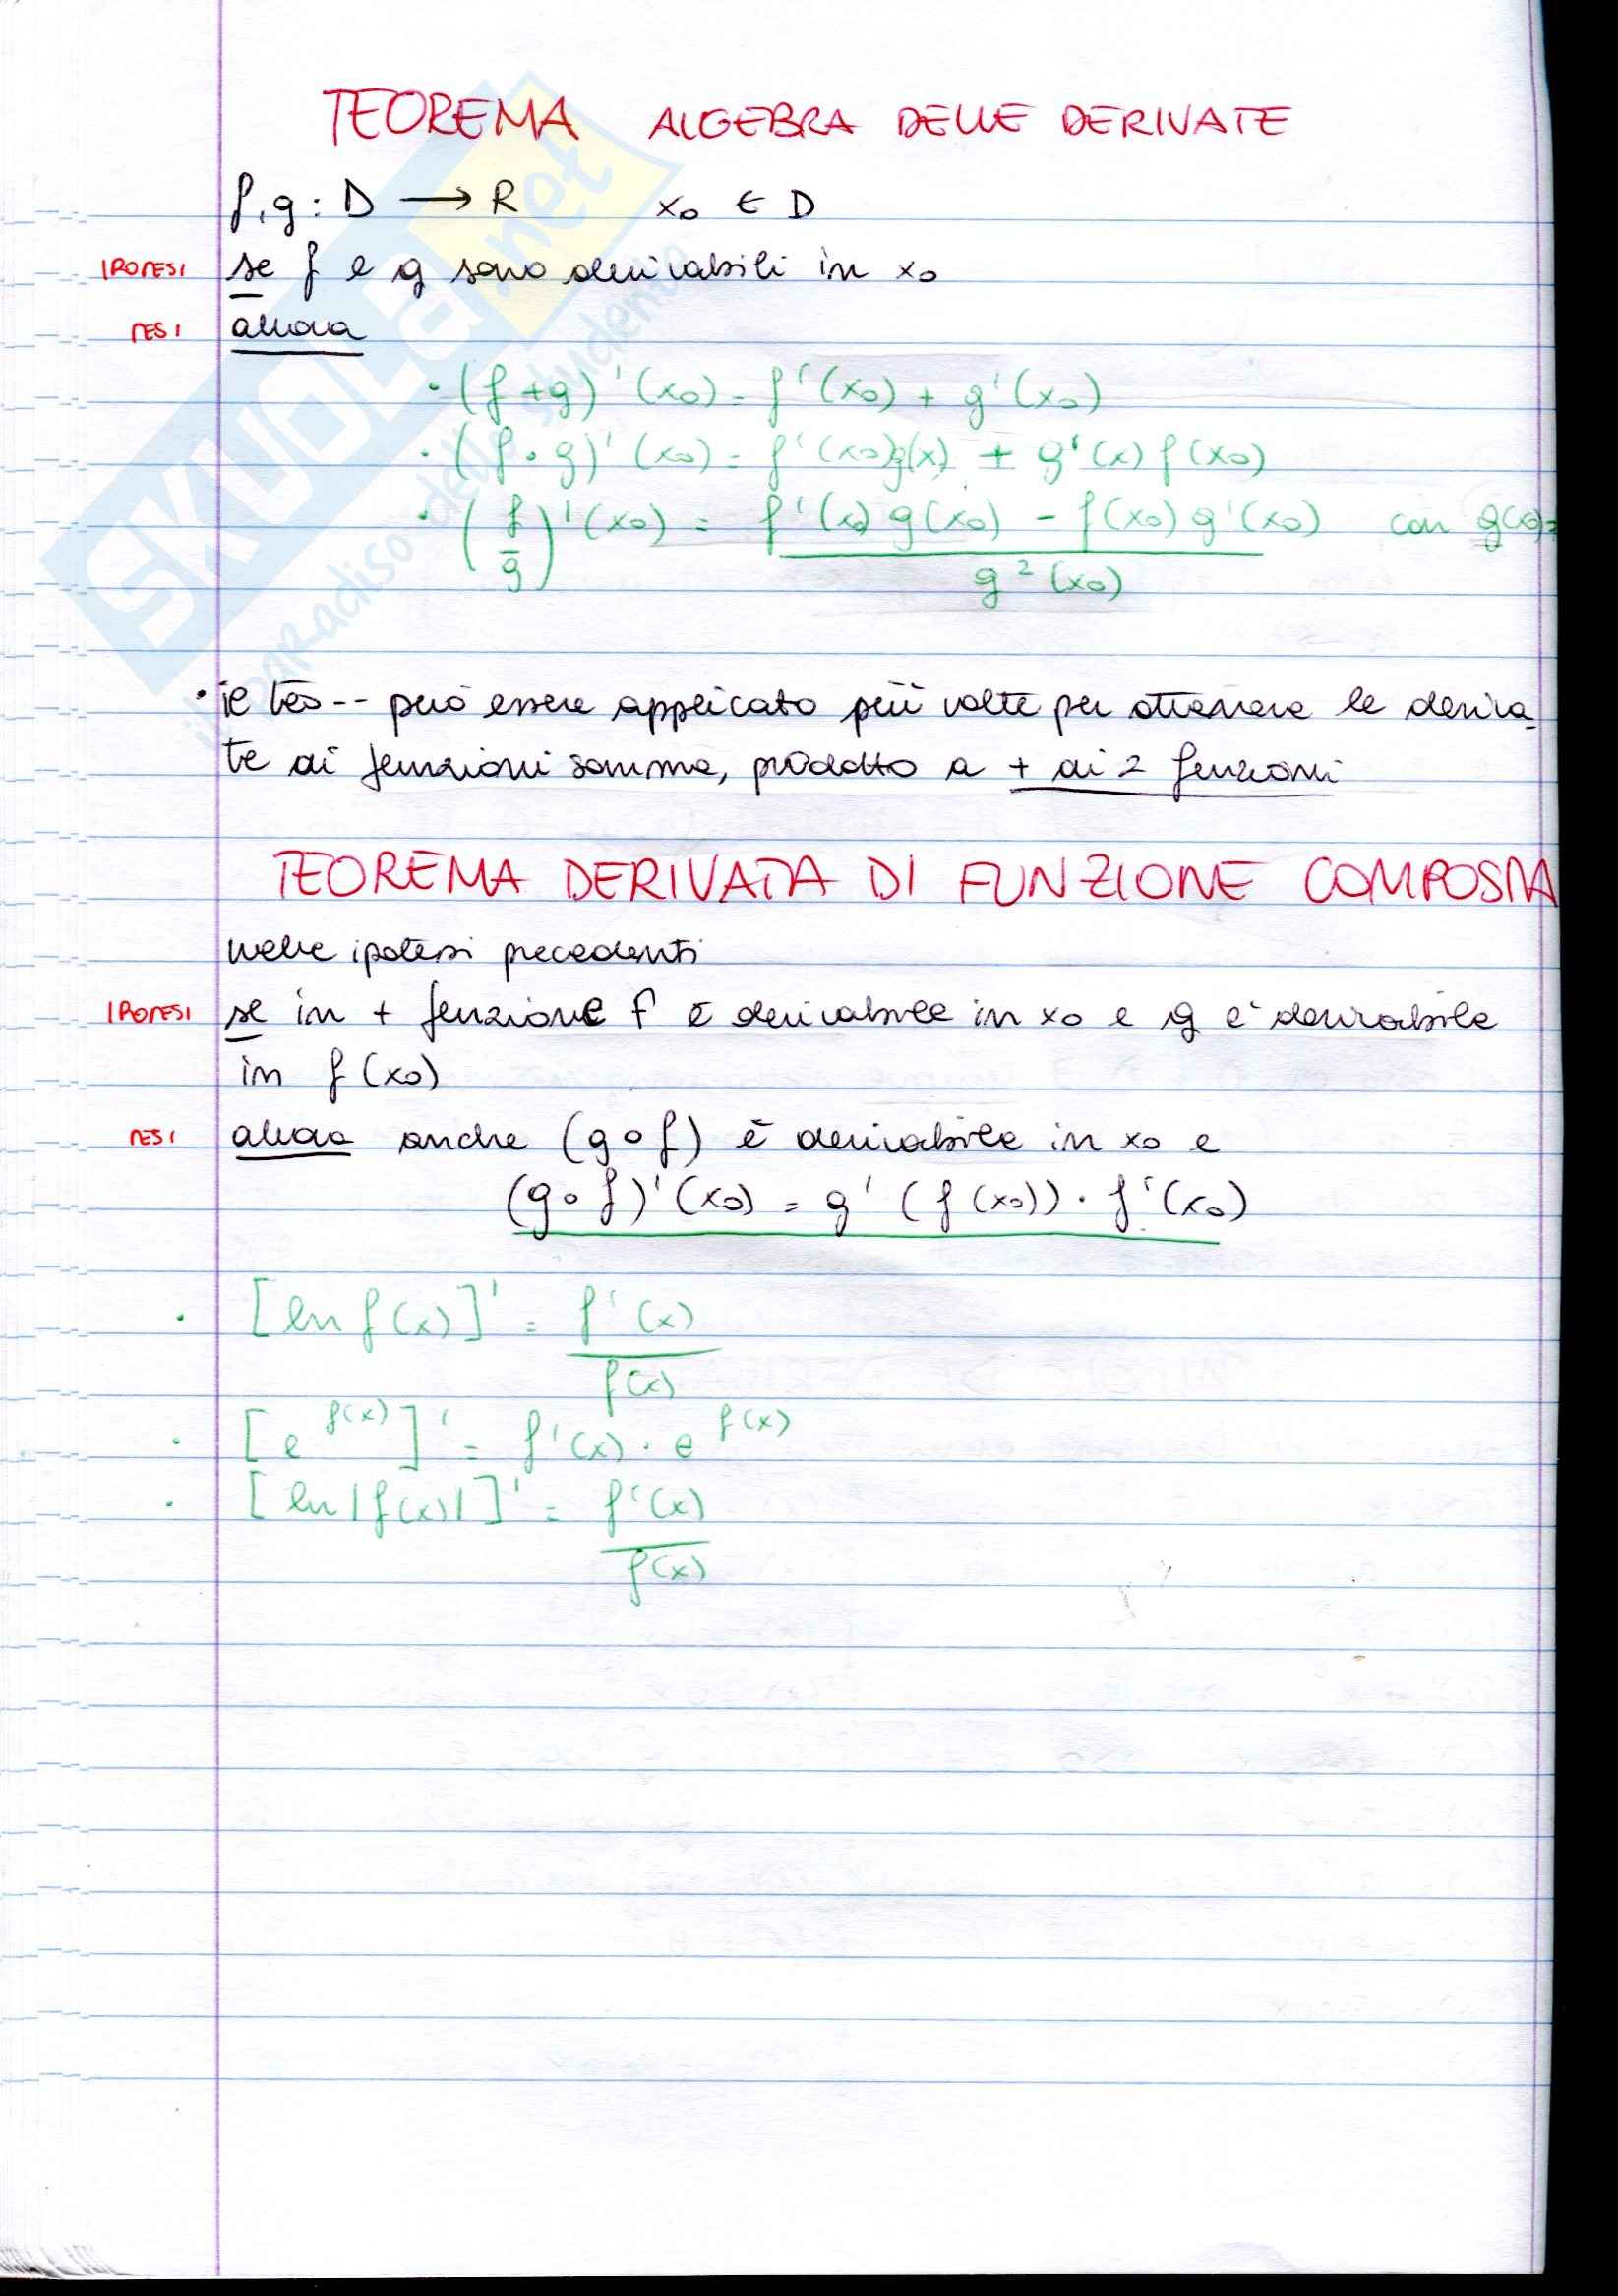 TEOREMA ALGEBRA DELLE DERIVATE
f,g : D → R x₀ ∈ D
IPOTESI se f e g sono derivabili in x₀
TESI allora
• (f+g)'(x₀) = f'(x₀) + g'(x₀)
• (f•g)'(x₀) = f'(x₀)g(x) + g'(x) f(x₀)
• (f/g)'(x₀) = f'(x₀) g(x₀) - f(x₀) g'(x₀) con g(x₀)
g²(x₀)
• il teo-- può essere applicato più volte per ottenere le deriva-
te di funzioni somma, prodotto a + di 2 funzioni
TEOREMA DERIVATA DI FUNZIONE COMPOSTA
nelle ipotesi precedenti
IPOTESI se in + funzione f è derivabile in x₀ e g è derivabile
in f(x₀)
TESI allora anche (g∘f) è derivabile in x₀ e
(g∘f)'(x₀) = g'(f(x₀)) · f'(x₀)
• [ln f(x)]' = f'(x)
f(x)
• [e^f(x)]' = f'(x) · e^f(x)
• [ln|f(x)|]' = f'(x)
f(x)
SKUOLA.net
il paradiso dello studente